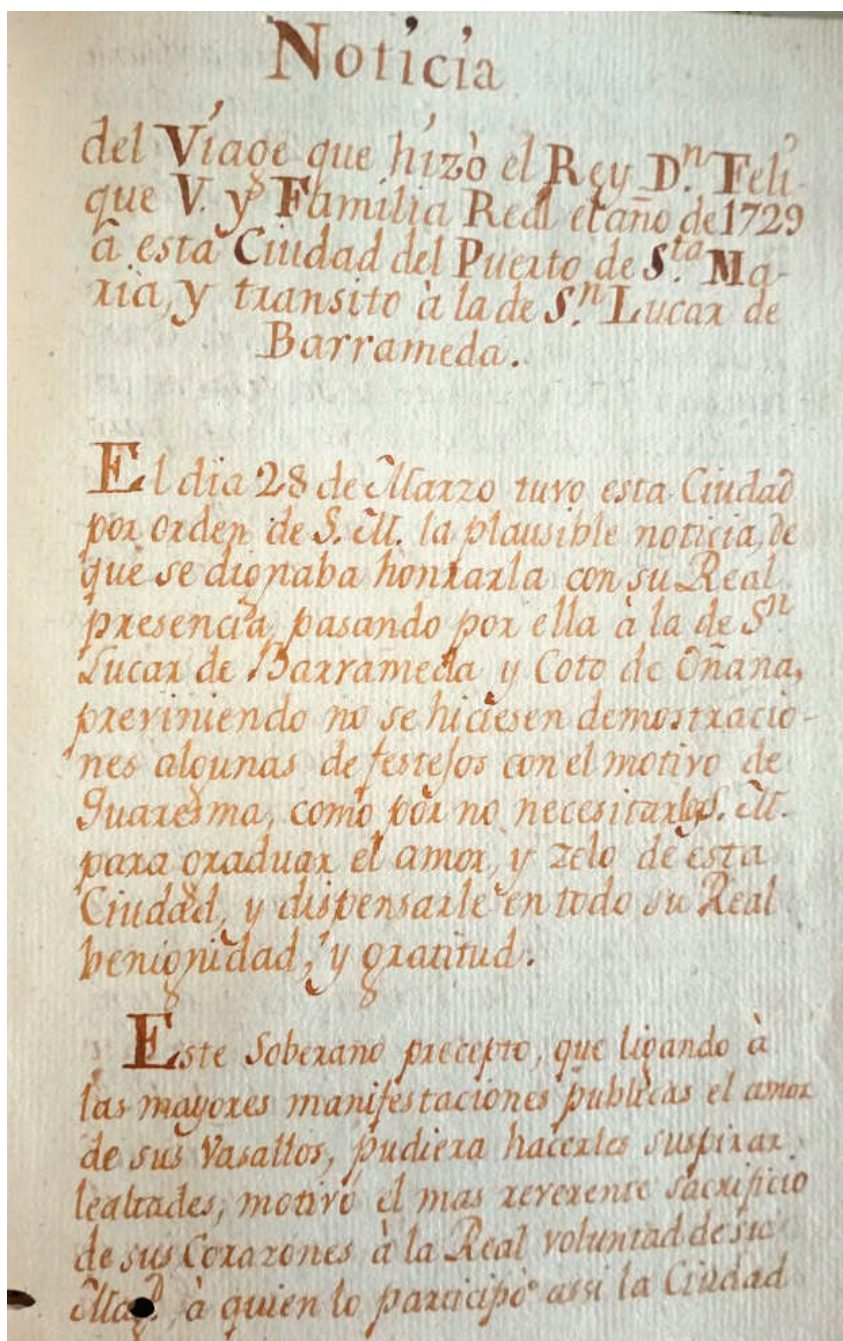 Noticia
del Viage que hizò el Rey D.n Feli-
que V. y Familia Real el año de 1729
à esta Ciudad del Puerto de S.ta Ma-
ria, y transito à la de S.n Lucar de
Barrameda.
El dia 28 de Marzo tuvo esta Ciudad
por orden de S. M. la plausible noticia, de
que se dignaba honrarla con su Real
presencia, pasando por ella à la de S.n
Lucar de Barrameda y Coto de Oñana,
previniendo no se hiciesen demostracio-
nes algunas de festejos con el motivo de
Quaresma, como por no necesitarlas S. M.
para graduar el amor, y zelo de esta
Ciudad, y dispensarle en todo su Real
benignidad, y gratitud.
Este Soberano precepto, que ligando à
las mayores manifestaciones publicas el amor
de sus Vasallos, pudiera hacerles suspirar
lealtades, motivó el mas reverente sacrificio
de sus Corazones à la Real voluntad de su
Mag.d, à quien lo participò assi la Ciudad